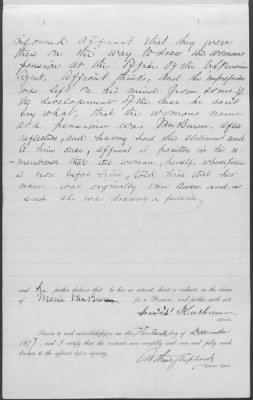 informed affiant that they were
then on the way to draw the womans
pension at the office of the U.S. pension
agent. Affiant thinks, and the impression
was left on his mind from some of
the development of the case he don't
say what, that the womans name
as a pensioner was Van Buren. After
reflecting and having had this statement read
to him over, affiant is positive in his re-
membrance that the woman, herself, whose
is now before him, told him that her
name was originally Van Buren and as
such she was drawing a pension,
and he further declares that he has no interest, direct or indirect, in the claim
of Maria Van Buren for a Pension, and further saith not.
Sworn to and subscribed before me this day of December
1897, and I certify that the contents were carefully read over and fully made
known to the affiant before signing.